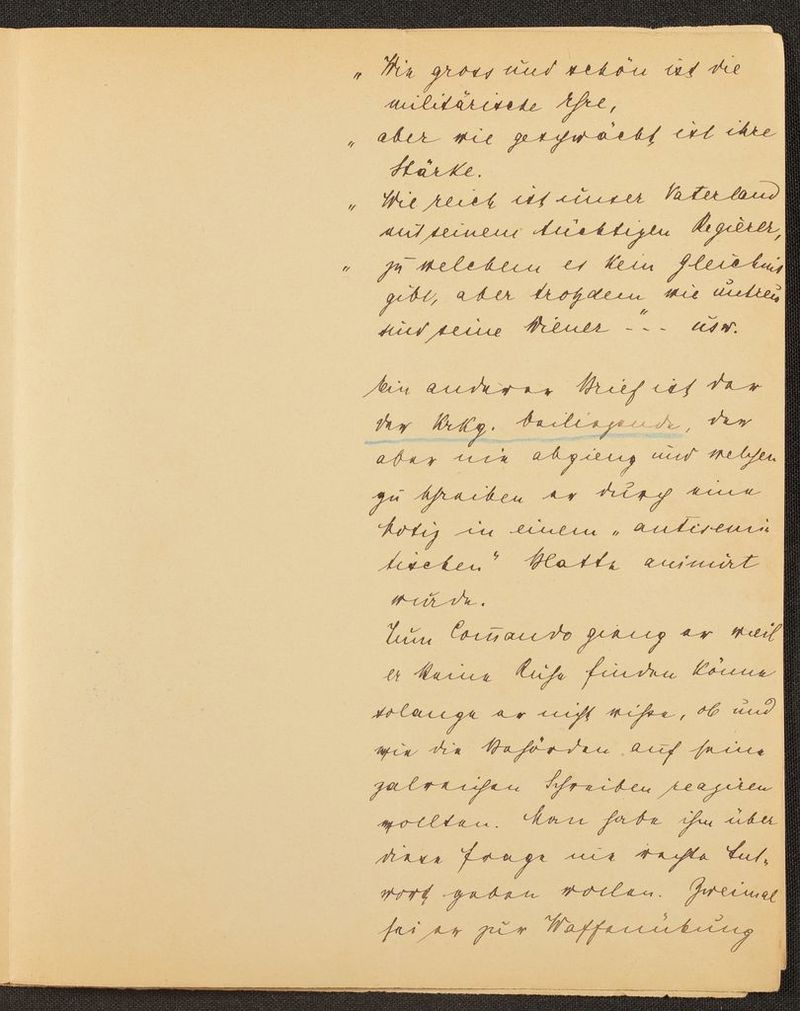 „ Wie gross und schön ist die
militärische Ehre,
„ aber wie geschwächt ist ihre
Stärke.
„ Wie reich ist unser Vaterland
mit seinem tüchtigen Regierer,
„ zu welchem es kein Gleichnis
gibt, aber trotzdem wie untreu
sind seine Diener -"-- usw.
Ein anderer Brief ist der
der Krkg. beiliegende, der
aber nie abgieng und welchen
zu schreiben er durch eine
Notiz in einem „antisemi-
tischen" Blatte animirt
wurde.
Zum Com̄ando gieng er weil
er keine Ruhe finden könne
solange er nicht wisse, ob und
wie die Behörden auf seine
zalreichen Schreiben reagiren
wollten. Man habe ihm über
diese Frage nie rechte Ant-
wort geben wollen. Zweimal
sei er zur Waffenübung